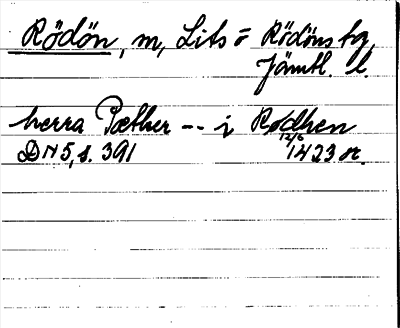 Rödön, m, Lits o Rödöns tg,
Jämtl. l.
herra Pæther -- i Rødhen
DN 5, s. 391 12/6 1423 or.